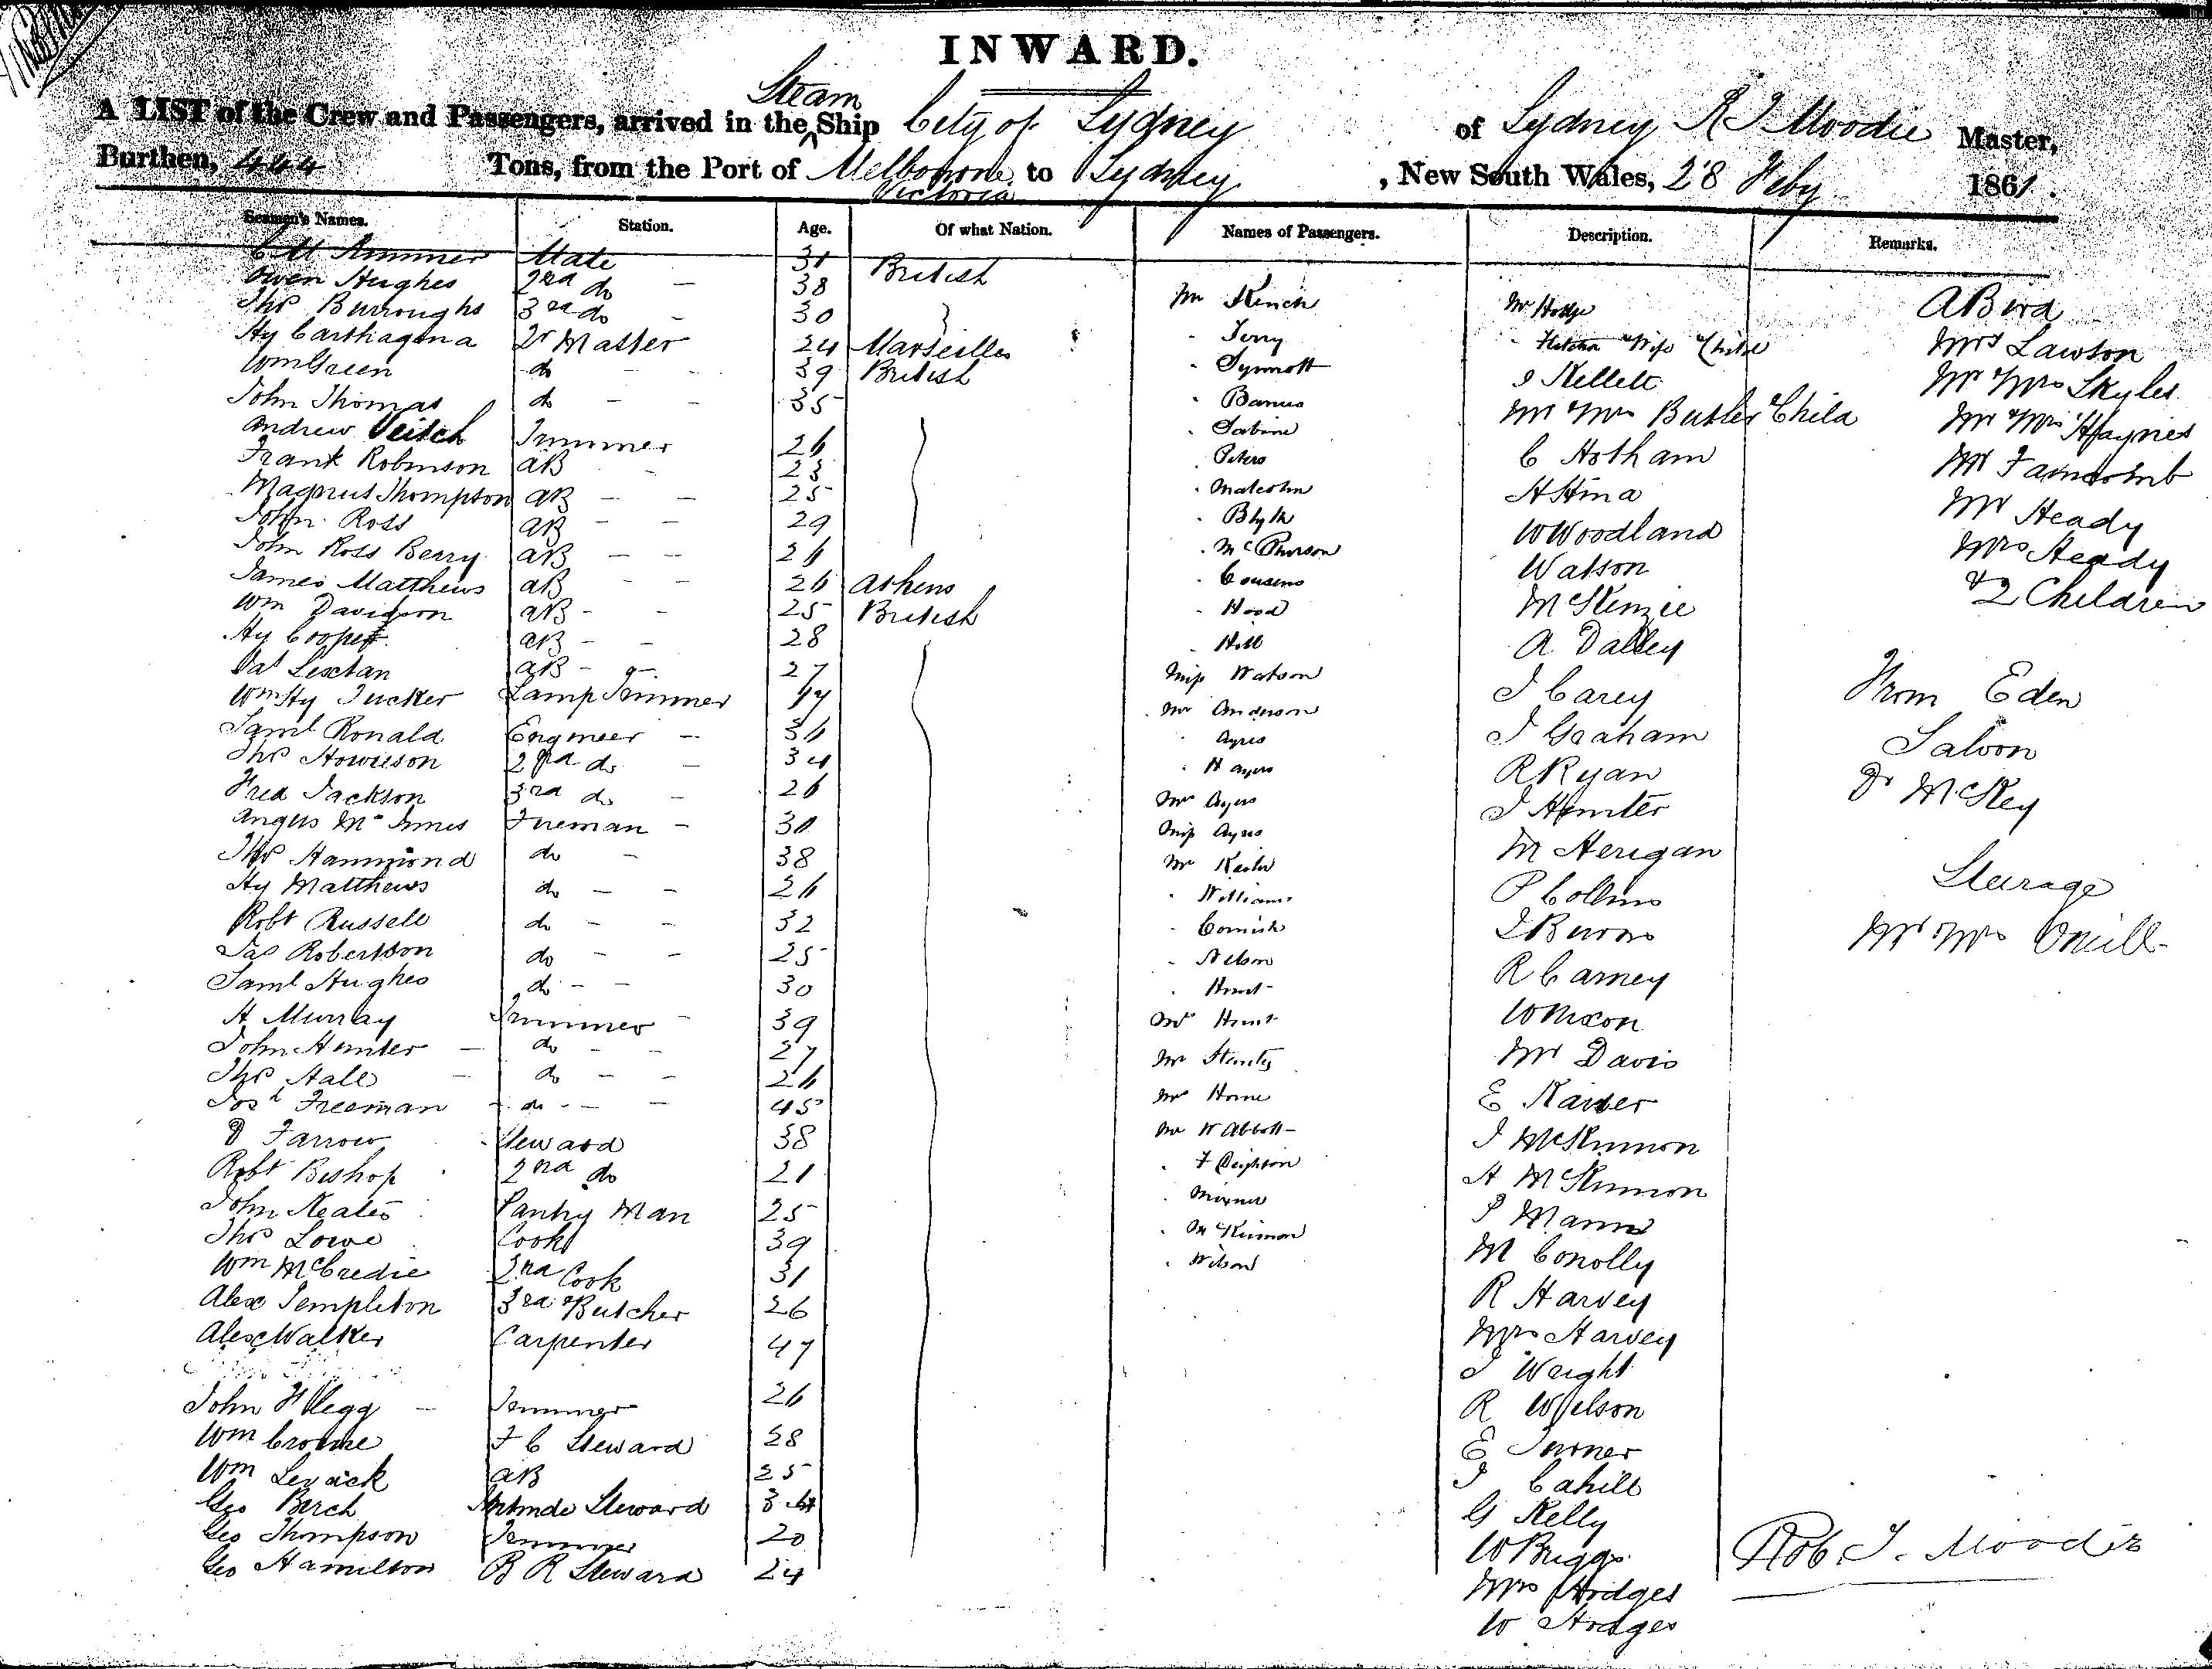 INWARD.
A LIST of the Crew and Passengers, arrived in the Steam Ship City of Sydney of Sydney R T Moodie Master,
Burthen, 444 Tons, from the Port of Melbourne Victoria to Sydney, New South Wales, 28 Feby 1861.
Seamen's Names. Station. Age. Of what Nation. Names of Passengers. Description. Remarks.
Mate 31 British
Owen Hughes 2nd do — 38
Thos Burroughs 3rd do - 30
Hy Carthagena Qr Master 24 Marseilles
Wm Green do 39 British
John Thomas do — — 35
Andrew Veitch Trimmer 26
Frank Robinson AB 23
Magnus Thompson AB — — 25
John Ross AB — — 29
John Ross Berry AB — — 26
James Matthews AB — — 26 Athens
Wm Davidson AB - — 25 British
Hy Cooper AB — — 28
AB 27
Wm Hy Tucker Lamp Trimmer 17
Saml Ronald Engineer — 36
Thos Howieson 2nd do — 34
Fred Jackson 3rd do — 26
Angus McInnes Fireman — 30
Thos Hammond do — 38
Hy Matthews do — — 26
Robt Russell do — — 32
Jas Robertson do — — 25
Saml Hughes do — — 30
H Murray Trimmer — 39
John Hunter — do — — 27
Thos Hall — do — — 26
Josh Freeman - do - — — 45
D Farrow Steward 38
Robt Bishop 2nd do 21
John Keates Pantry Man 25
Thos Lowe Cook 39
Wm McCredie 2nd Cook 31
Alex Templeton 3rd & Butcher 26
Alex Walker Carpenter 47
John H Legg — Trimmer 26
Wm Croome F C Steward 28
Wm Levick AB 25
Geo Birch Steward
Geo Thompson Trimmer 20
Geo Hamilton B R Steward 24
Mr Kench
" Terry
" Synnott
" Sabine
" Peters
" Malcolm
" Blyth
" McPherson
" Cousens
" Hood
" Hill
Miss Watson
Mr Anderson
" Ayres
" H Ayres
Mrs Ayres
Miss Ayres
Mr
" Williams
" Cornish
" Nelson
" Hunt
Mrs Hunt
Mr
Mr Horne
Mr W Abbott
" F Deighton
" McKinnon
" Wilson
Mr Hodge
" Wife & Child
J Kellett
Mr & Mrs Butler & Child
C Hotham
W Woodland
Watson
McKenzie
A Dalley
J Carey
J Graham
R Ryan
J Hunter
M Herigan
P Collins
J Burns
R Carney
W Nixon
Mr Davis
E Kaiser
J McKinnon
A McKinnon
P Mann
M Conolly
R Harvey
Mrs Harvey
J Wright
R Wilson
E Turner
J Cahill
G Kelly
W Briggs
Mrs Hodges
W Hodges
A Bird
Mrs Lawson
Mr & Mrs Skyles
Mr & Mrs Haynes
Mr
Mr Heady
Mrs Heady
& 2 Children
From Eden
Saloon
Dr McKey
Steerage
Mr & Mrs Oneill
Rob. T. Moodie